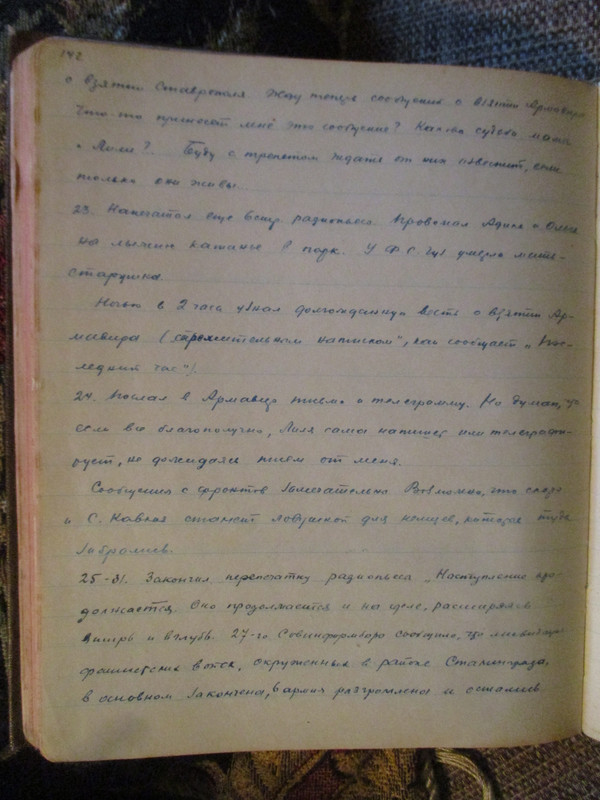 142
о взятии Ставрополя. Жду теперь сообщения о взятии Армавира.
Что-то принесет мне это сообщение? Какова судьба мамы
и Лили? Буду с трепетом ждать от них известий, если
только они живы.
23. Напечатал еще 6 стр. радиопьесы. Провожал и Олега
на лыжн. катанье в парк. У Ф. С. умерла мать-
старушка.
Ночью в 2 часа узнал долгожданную весть о взятии Ар-
мавира ("стремительным натиском", как сообщает "Пос-
ледний час")!
24. Послал в Армавир письмо и телеграмму. Но думаю, что
если все благополучно, Лиля сама напишет или телеграфи-
рует, не дожидаясь писем от меня.
Сообщения с фронтов замечательные. Возможно, что скоро
и С. Кавказ станет ловушкой для немцев, которые туда
забрались.
25-31. Закончил перепечатку радиопьесы "Наступление про-
должается". Оно продолжается и на деле, расширяясь
вширь и вглубь. 27-го Совинформбюро сообщило, что ликвидация
фашистских войск, окруженных в районе Сталинграда,
в основном закончена, армия разгромлена и остались